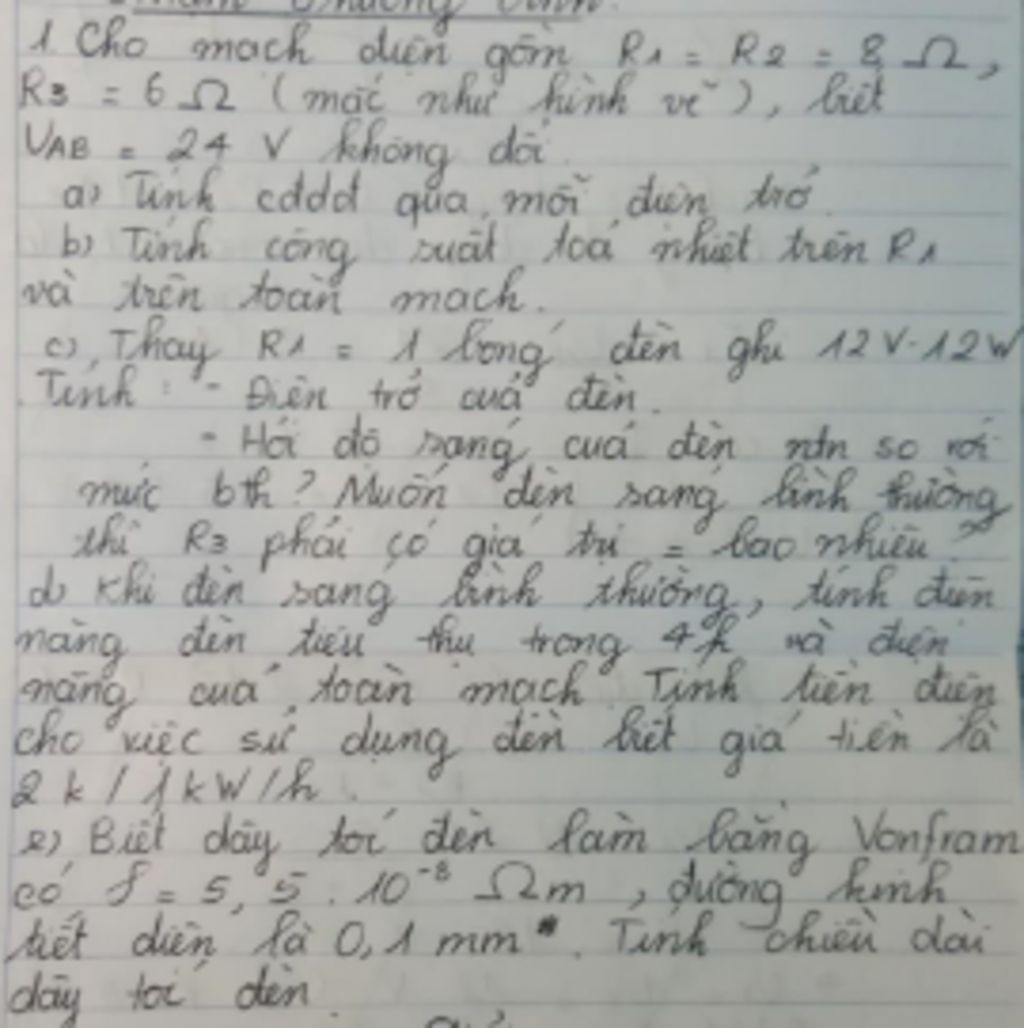 1. Cho mạch điện gồm R1 = R2 = 8 Ω,
R3 = 6 Ω (mắc như hình vẽ), biết
UAB = 24 V không đổi.
a) Tính cđdđ qua mỗi điện trở.
b) Tính công suất toả nhiệt trên R1
và trên toàn mạch.
c), Thay R1 = 1 bóng đèn ghi 12V-12W
Tính: - Điện trở của đèn.
- Hỏi độ sáng của đèn ntn so với
mức bth? Muốn đèn sáng bình thường
thì R3 phải có giá trị = bao nhiêu?
d) Khi đèn sáng bình thường, tính điện
năng đèn tiêu thụ trong 4h và điện
năng của toàn mạch. Tính tiền điện
cho việc sử dụng đèn biết giá tiền là
2k/1kW/h.
e) Biết dây tóc đèn làm bằng Vonfram
có ρ = 5,5.10⁻⁸ Ωm, đường kính
tiết diện là 0,1 mm. Tính chiều dài
dây tóc đèn.